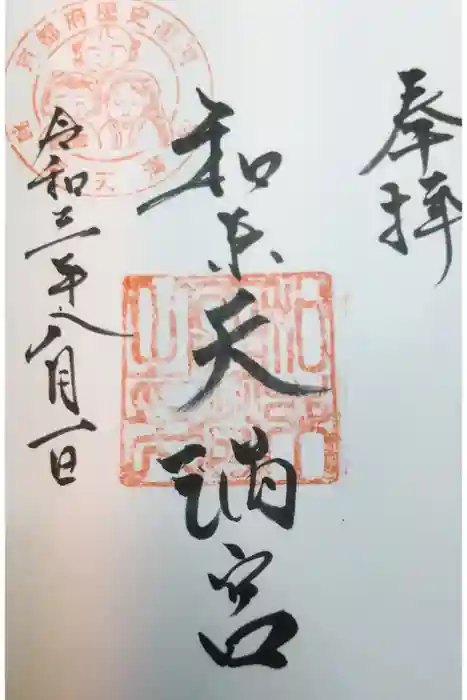 奉拝
和束天満宮
令和三年八月一日